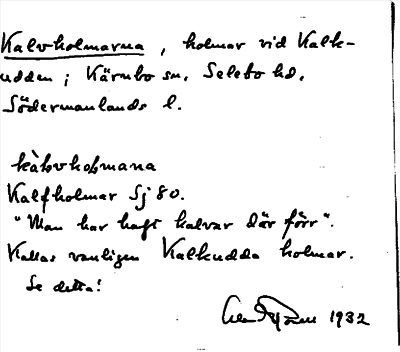 Kalvholmarna, holmar vid Kalk-
udden i Kärnbo sn, Selebo hd,
Södermanlands l.
kàƀvhoƀmana
Kalfholmar Sj 80.
"Man har haft kalvar där förr".
Kallas vanligen Kalkudda holmar.
Se detta!
1932